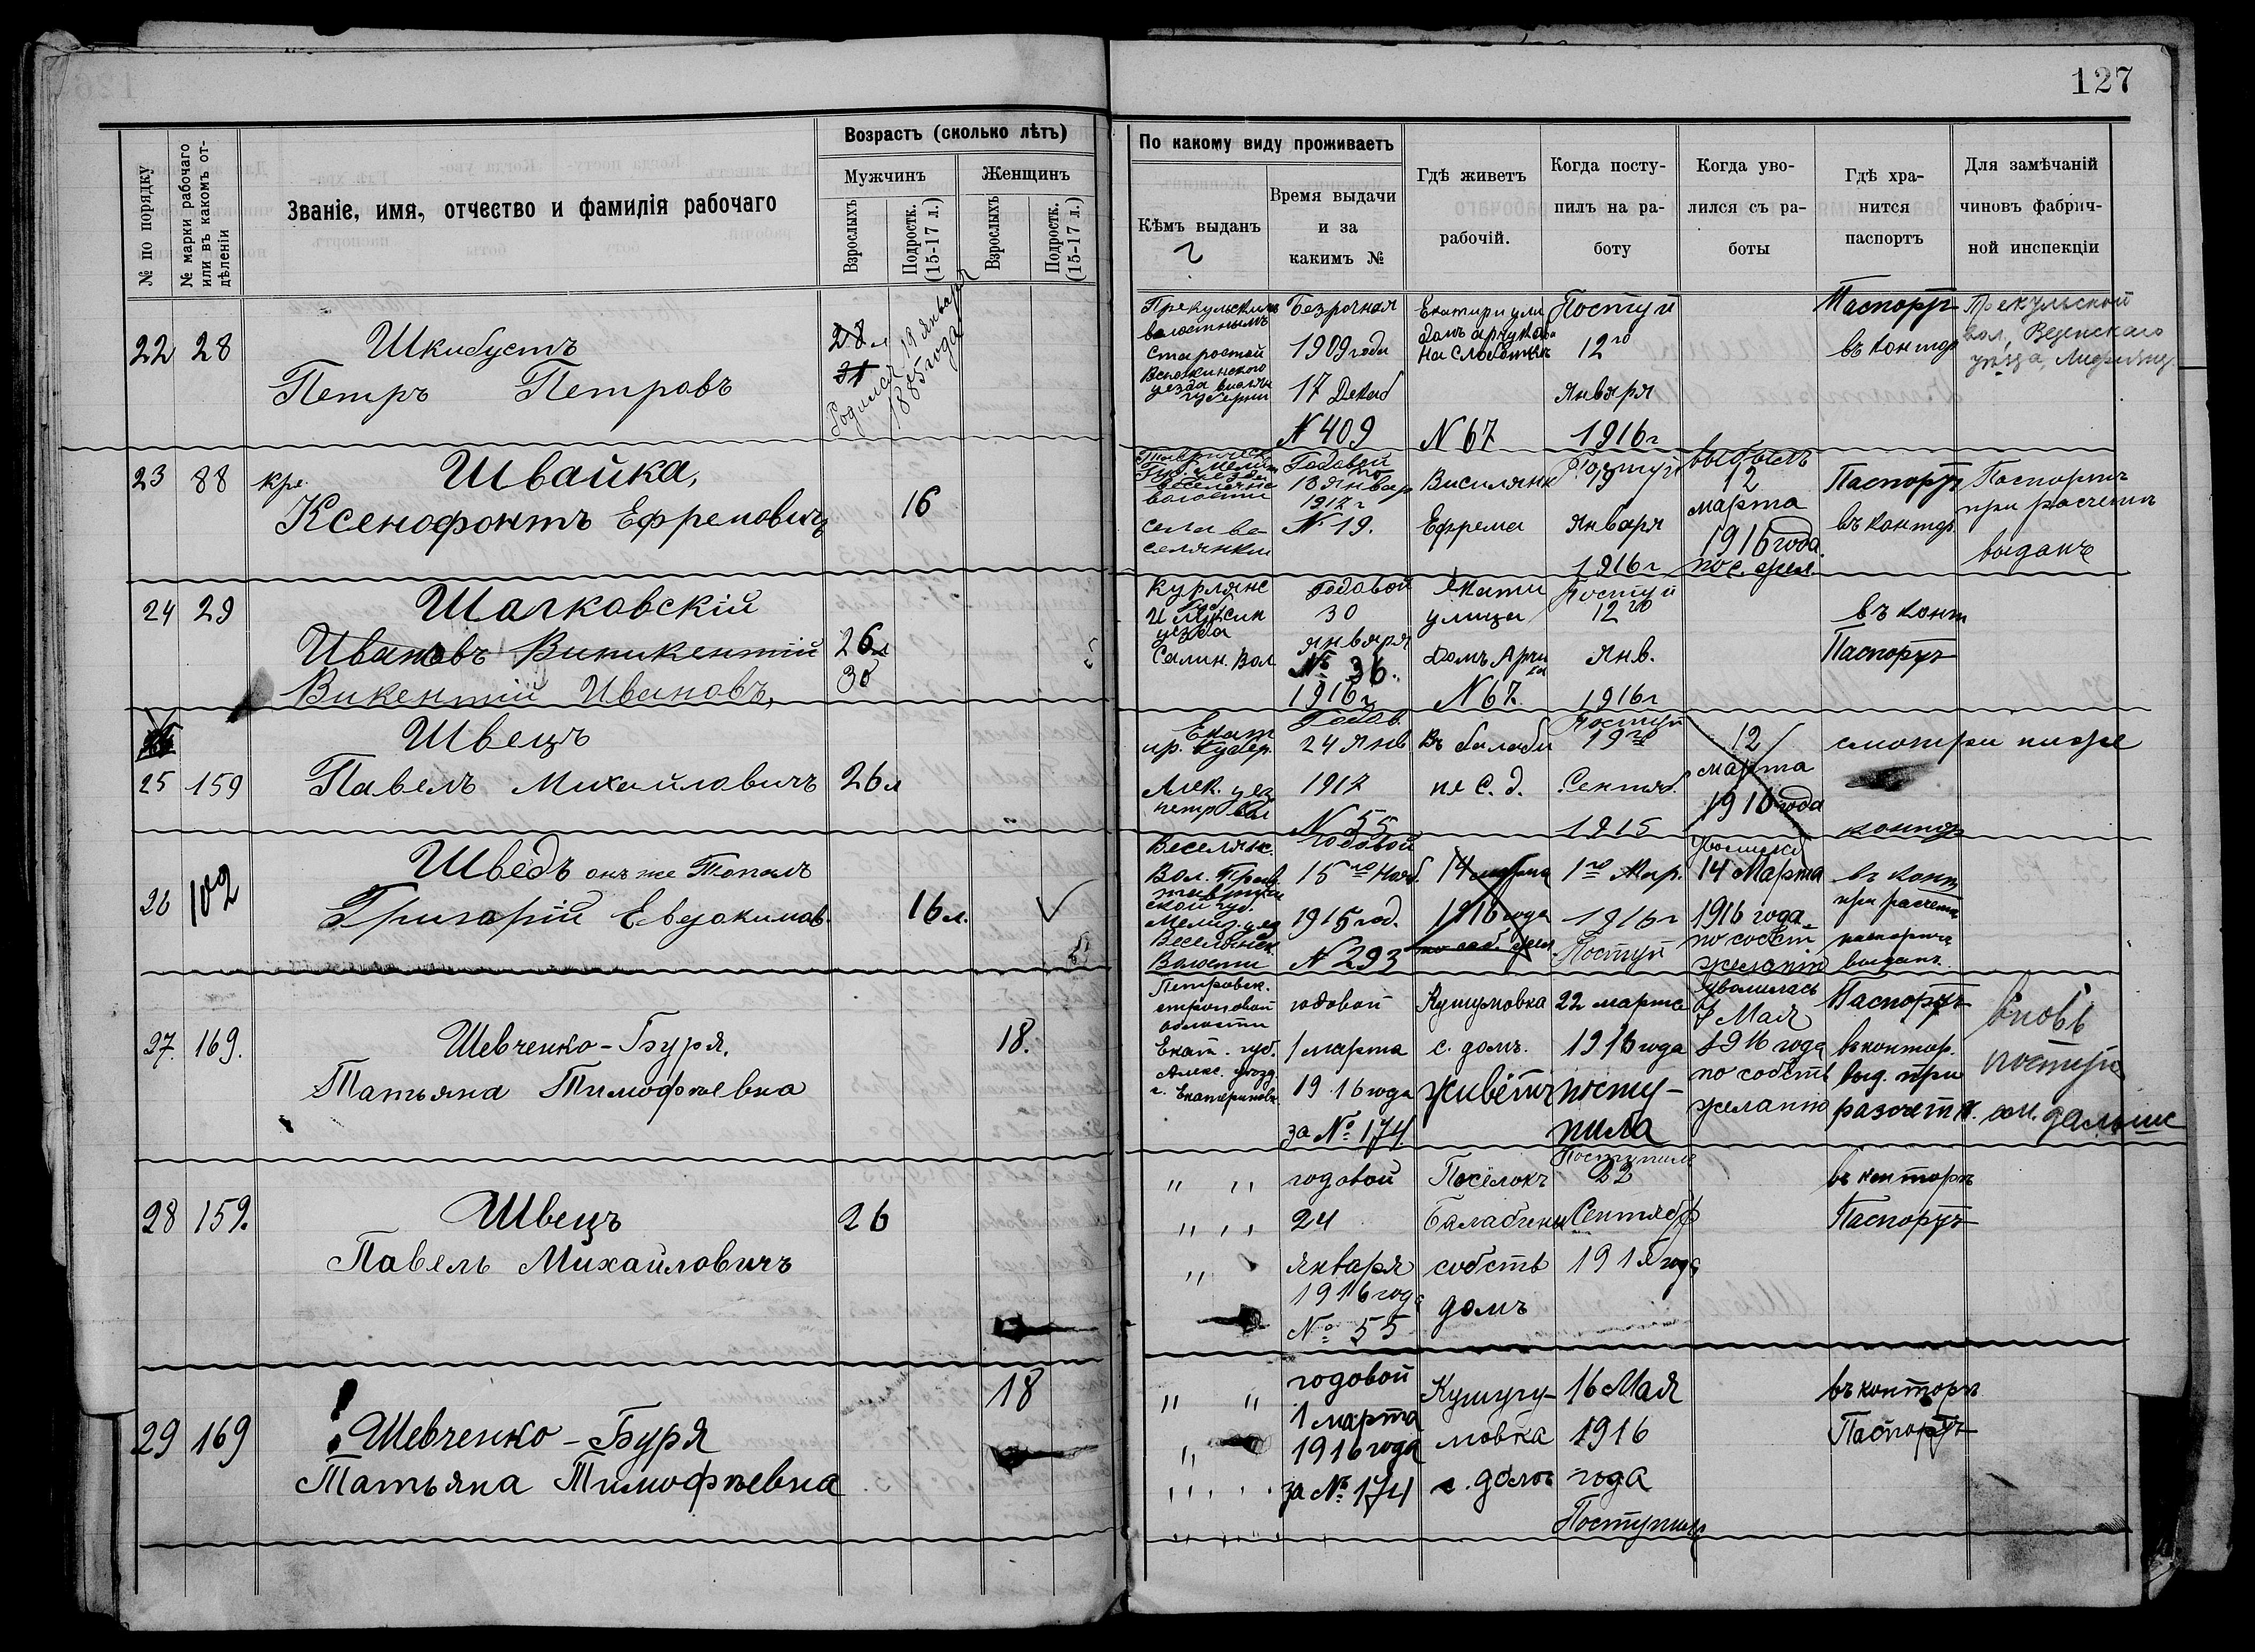 127
№ по порядку
№ марки рабочаго или въ какомъ отдѣленіи
Званіе, имя, отчество и фамилія рабочаго
Возрастъ (сколько лѣтъ)
Мужчинъ
Женщинъ
Взрослыхъ
Подростк. (15-17 л.)
Взрослыхъ
Подростк. (15-17 л.)
По какому виду проживаетъ
Кѣмъ выданъ
Время выдачи
и за
какимъ №
Гдѣ живетъ
рабочій.
Когда посту-
пилъ на ра-
боту
Когда уво-
лился съ ра-
боты
Гдѣ хра-
нится
паспортъ
Для замѣчаній
чиновъ фабрич-
ной инспекціи
22 28
Шкибустъ
Петръ Петровъ
28 л
31
Родился 19 января
1885 года
Прекульскимъ
волостнымъ
старостой
уезда
губерніи
Безрочная
1909 года
17 Декаб
N 409
на Слободкѣ
N 67
Поступ
12го
Января
1916 г
Паспортъ
въ контор
Прекульской
вол, Веденскаго
23 88
кре.
Швайка,
Ксенофонтъ Ефремовичъ
16
волости
села Ве
селянки
Годовой
18 Январ
1917 г
№ 19.
Василянк
Ефрема
Поступ
19
Января
1916 г
выбылъ
12
марта
1916 года.
по с. жел.
Паспортъ
въ контор
Паспортъ
при расчетѣ
выданъ
24 29
Шалковскій
Ивановъ Виникентій
Викентій Ивановъ,
26 л
30
Курлянс
Губ
уезда
Салин. Вол
Годовой
30
января
№ 36.
1916 г
Екати
улица
домъ Арчу
N 67.
Поступ
12го
Янв.
1916 г
въ конт
Паспортъ
25 159
Швецъ
Павелъ Михайловичъ
26 л
Екат
Губер.
Алек. уез
петр вол
Годов.
24 Янв
1917
N 55
Въ балаби
не С. д.
Поступ
19го
Сентяб.
1915
12
марта
1916 года
смотри ниже
контор
26 102
Шведъ онъ же Топалъ
Григорій Евдокимов.
16 л.
Веселянс.
Вол. Прав.
Мелит. уез
Веселянск
Волости
годовой
15го Нояб.
1915 год.
N 293
14 марта
1916 года
по соб. жел
1го Мар.
1916 г
Поступ
Уволился
14 Марта
1916 года
по собст
желанію
въ конт
при расчетѣ
паспортъ
выданъ.
27. 169.
Шевченко-Буря,
Татьяна Тимофѣевна
18.
Петровск.
волости
Екат. губ.
Алекс. уезд
годовой
1 марта
1916 года
за № 174.
Кушумовка
с. домъ.
живётъ
22 марта
1916 года
посту-
пила
Уволилась
8 Мая
1916 года
по собств
желанію
Паспортъ
въ контор.
выд. при
разчетѣ.
вновь
поступ
см. дальше
28 159.
Швецъ
Павелъ Михайловичъ
26
" "
" "
"
годовой
24
января
1916 года
№ 55
Посёлокъ
Балабчены
собств
домъ
Поступилъ
22
Сентябр
1915 года
въ конторѣ
Паспортъ
29 169
Шевченко-Буря
Татьяна Тимофѣевна
18
" "
"
годовой
1 марта
1916 года
за № 174
Кушугу-
мовка
с. домъ
16 Мая
1916
года
Поступил
въ конторѣ
Паспортъ